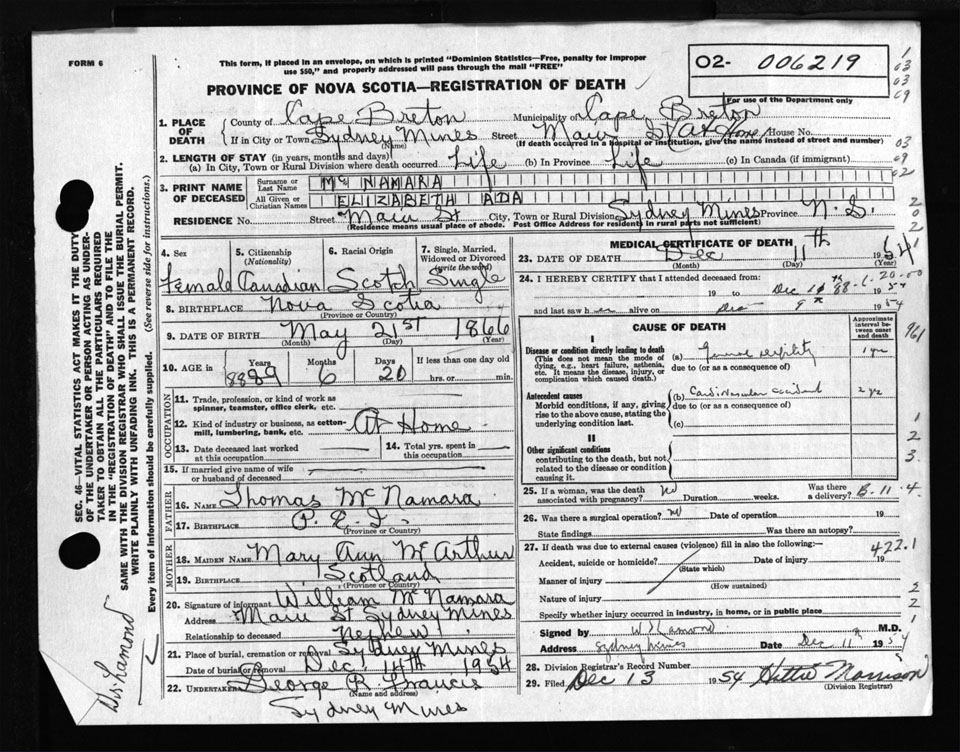 FORM 6
This form, if placed in an envelope, on which is printed "Dominion Statistics—Free, penalty for improper
use $50," and properly addressed will pass through the mail "FREE"
O2- 006219
PROVINCE OF NOVA SCOTIA—REGISTRATION OF DEATH
For use of the Department only
1. PLACE OF DEATH
County of Cape Breton Municipality Cape Breton
If in City or Town Sydney Mines Street Main St (At Home) House No.
(Name) (If death occurred in a hospital or institution, give the name instead of street and number)
2. LENGTH OF STAY (in years, months and days)
(a) In City, Town or Rural Division where death occurred Life (b) In Province Life (c) In Canada (if immigrant)
3. PRINT NAME OF DECEASED
Surname or Last Name McNAMARA
All Given or Christian Names ELIZABETH ADA
RESIDENCE No. Street Main St City, Town or Rural Division Sydney Mines Province N.S.
(Residence means usual place of abode. Post Office Address for residents in rural parts not sufficient)
4. Sex Female
5. Citizenship (Nationality) Canadian
6. Racial Origin Scotch
7. Single, Married, Widowed or Divorced (write the word) Single
8. BIRTHPLACE Nova Scotia
(Province or Country)
9. DATE OF BIRTH May 21st 1866
(Month) (Day) (Year)
10. AGE in Years 88 Months 6 Days 20 If less than one day old
hrs. or min.
OCCUPATION
11. Trade, profession, or kind of work as
spinner, teamster, office clerk, etc.
12. Kind of industry or business, as cotton-
mill, lumbering, bank, etc. At Home
13. Date deceased last worked
at this occupation
14. Total yrs. spent in
this occupation
15. If married give name of wife
or husband of deceased
FATHER
16. Name Thomas McNamara
17. Birthplace P.E.I.
(Province or Country)
MOTHER
18. MAIDEN NAME Mary Ann McArthur
19. Birthplace Scotland
(Province or Country)
20. Signature of informant William McNamara
Address Main St Sydney Mines
Relationship to deceased Nephew
21. Place of burial, cremation or removal Sydney Mines
Date of burial or removal Dec. 14th 1954
22. Undertaker George R. Francis
(Name and address)
Sydney Mines
MEDICAL CERTIFICATE OF DEATH
23. DATE OF DEATH Dec 11th 1954
(Month) (Day) (Year)
24. I HEREBY CERTIFY that I attended deceased from:
19 to Dec 1954
and last saw her alive on Dec 9th 1954
CAUSE OF DEATH
Approximate interval between onset and death
I
Disease or condition directly leading to death
(This does not mean the mode of
dying, e.g., heart failure, asthenia,
etc. It means the disease, injury, or
complication which caused death.)
(a) General debility 1 yr
due to (or as a consequence of)
Antecedent causes
Morbid conditions, if any, giving
rise to the above cause, stating the
underlying condition last.
(b) Cardiovascular accident 2 yrs
due to (or as a consequence of)
(c)
II
Other significant conditions
contributing to the death, but not
related to the disease or condition
causing it.
25. If a woman, was the death
associated with pregnancy? No Duration weeks. Was there
a delivery? B-11
26. Was there a surgical operation? No Date of operation 19
State findings Was there an autopsy?
27. If death was due to external causes (violence) fill in also the following:— 422.1
Accident, suicide or homicide? Date of injury 19
(State which)
Manner of injury
(How sustained)
Nature of injury
Specify whether injury occurred in industry, in home, or in public place
Signed by M.D.
Address Sydney Mines Date Dec 11th 1954
28. Division Registrar's Record Number
29. Filed Dec 13 1954 Hettie Morrison
(Division Registrar)
SEC. 46—VITAL STATISTICS ACT MAKES IT THE DUTY
OF THE UNDERTAKER OR PERSON ACTING AS UNDER-
TAKER TO OBTAIN ALL THE PARTICULARS REQUIRED
IN THE "REGISTRATION OF DEATH" AND TO FILE THE
SAME WITH THE DIVISION REGISTRAR WHO SHALL ISSUE THE BURIAL PERMIT.
WRITE PLAINLY WITH UNFADING INK. THIS IS A PERMANENT RECORD.
Every item of information should be carefully supplied. (See reverse side for instructions.)